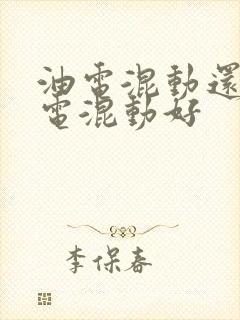 油電混動還
電混動好
李保春